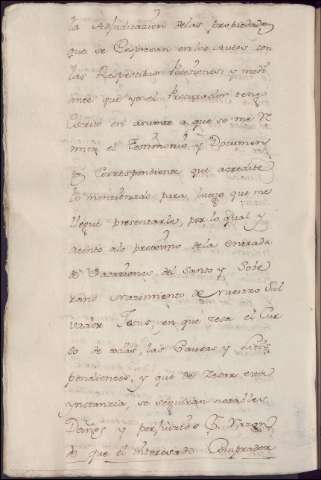 la Adjudicacion de las propiedades
que se Expresan en los Autos con
las Respectibas Poseciones, y medi
ante que yo el Procurador tengo
Escrito en asunto a que se me R
mita el Testimonio, y Documen
Correspondiente que acredite
lo mencionado para luego que me
llegue presentarla, por lo qual y
atento a lo proximo de la entrada
de Vacasiones, del Santo y Sobe
rano Nacimiento de Nuestro Sal
vador Jesus, en que sesa el Cur
so de todas las Causas y
pendiences, y que de Zesar esta
ynstancia, se seguiran notables
Daños y perjuicios
que el interesado Comprador